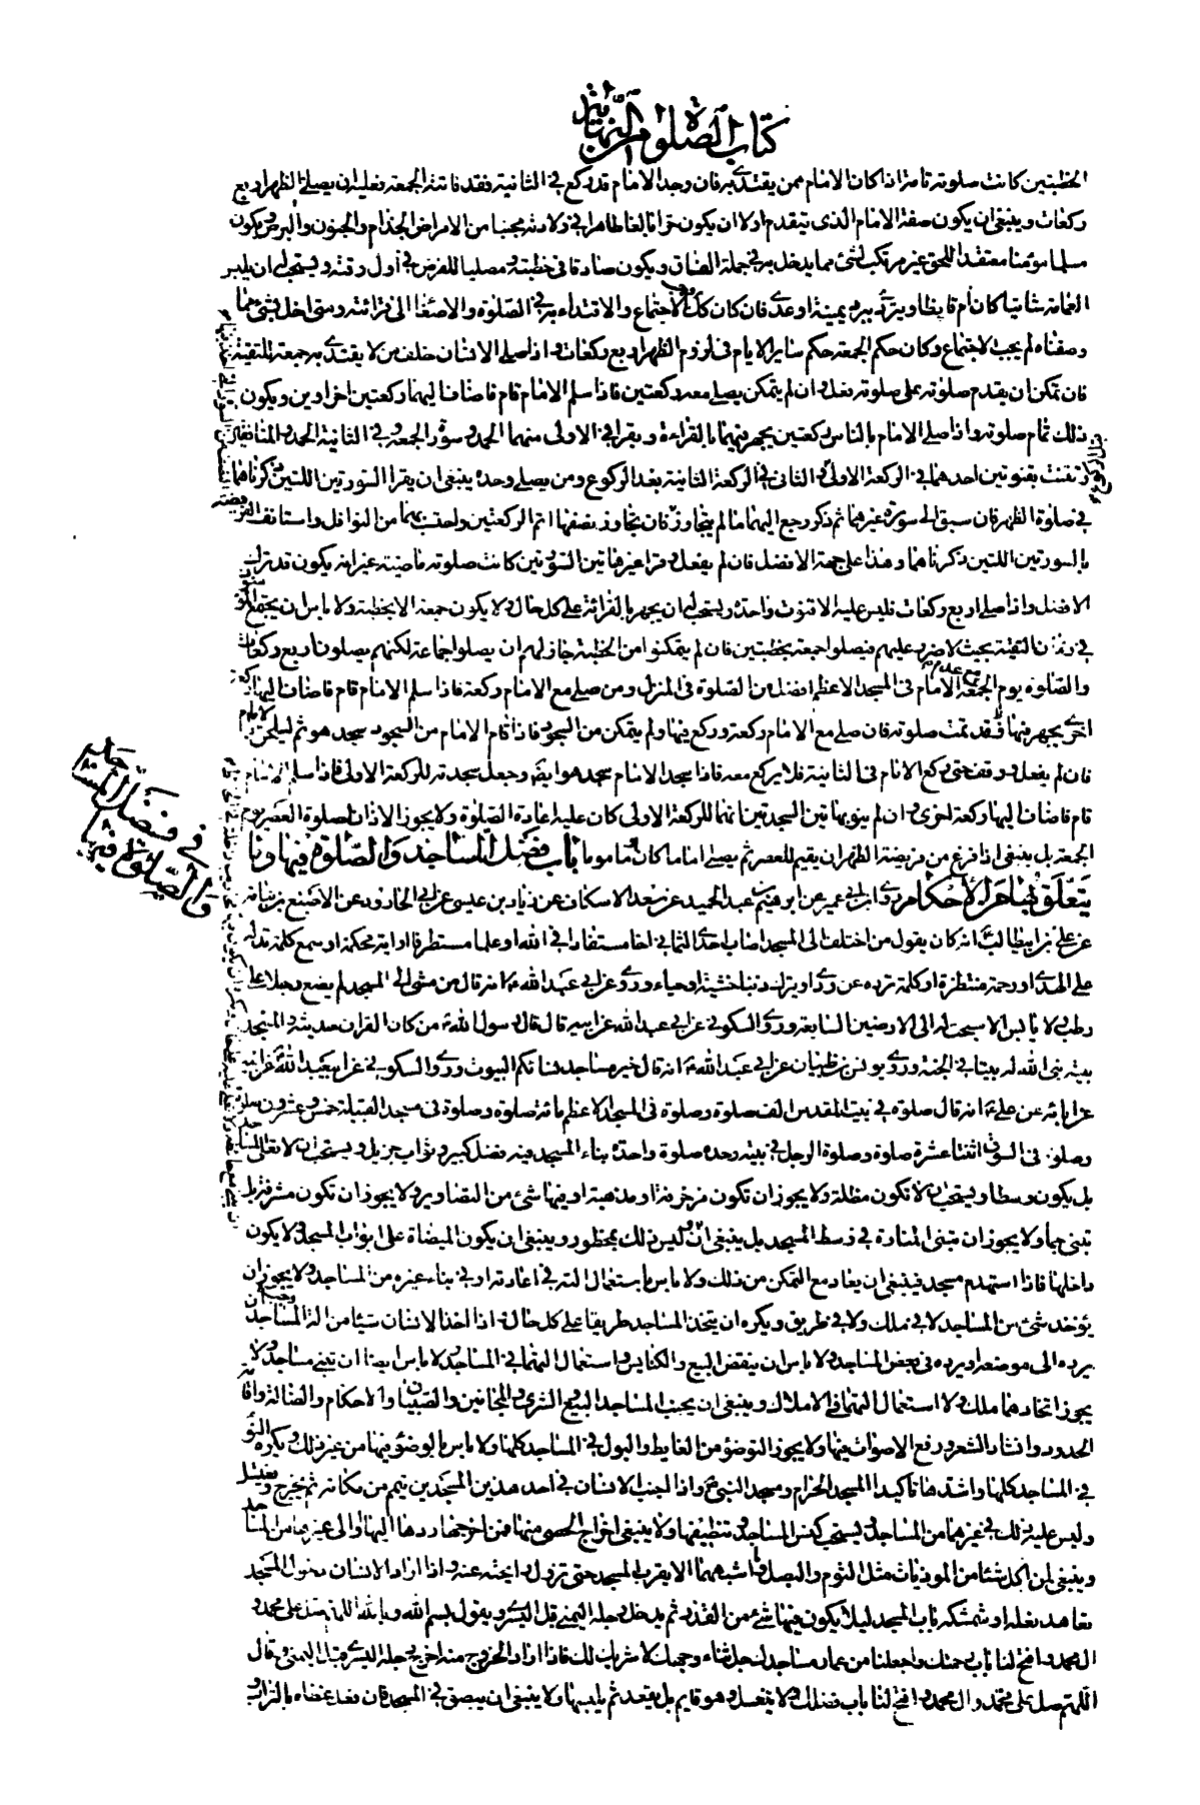 كتاب الصلوة من النهاية
الخطبتين كانت صلوته تامة اذا كان الامام ممن يقتدى به فان وجد الامام قد ركع في الثانية فقد فاتته الجمعة فعليه ان يصلي الظهر اربع
ركعات وينبغي ان يكون صفة الامام الذي يتقدم اولا ان يكون حرا بالغا طاهرا في ولادته مجنبا من الامراض الجذام والجنون والبرص ويكون
مسلما مؤمنا معتقدا للحق غير مرتكب لشئ مما يدخل به في جملة الفساق ويكون صادقا في خطبته ومصليا للفرض في اول وقته ويستحب له ان يلبس
العمامة شاتيا كان ام قايظا ويرتدى ببرد يمنية او عدني فان كان كذلك وجب الاجتماع والاقتداء به في الصلوة والاصغاء الى قرائته ومتى اخل بشئ مما
وصفناه لم يجب الاجتماع وكان حكم الجمعة حكم ساير الايام في لزوم الظهر اربع ركعات واذا صلى الانسان خلف من لا يقتدى به جمعة للتقية
فان تمكن ان يقدم صلوته على صلوته فعل وان لم يتمكن يصلي معه ركعتين فاذا سلم الامام قام فاضاف اليهما ركعتين اخراوين ويكون
ذلك تمام صلوته واذا صلى الامام بالناس ركعتين يجهر فيهما بالقراءة ويقرا في الاولى منهما الحمد وسورة الجمعة وفي الثانية الحمد والمنافقين
ويقنت بقنوتين احدهما في الركعة الاولى والثاني في الركعة الثانية بعد الركوع ومن يصلي وحده ينبغي ان يقرا السورتين اللتين ذكرناهما
في صلوة الظهر فان سبق الى سورة غيرهما ثم ذكر رجع اليهما ما لم يتجاوز فان تجاوز نصفها اتم الركعتين واحتسب بهما من النوافل واستانف الفريضة
بالسورتين اللتين ذكرناهما وهذا على جهة الافضل فان لم يفعل وقرا غير هاتين السورتين كانت صلوته ماضية غير انه يكون قد ترك
الافضل واذا صلى اربع ركعات فليس عليه الا قنوت واحدة ويستحب له ان يجهر بالقرائة على كل حال ولا يكون جمعة الا بخطبة ولا باس ان يجتمع المؤمنون
في زمان التقية بحيث لا ضرر عليهم فيصلوا جمعة بخطبتين فان لم يتمكنوا من الخطبة جاز لهم ان يصلوا جماعة لكنهم يصلون اربع ركعات
والصلوة يوم الجمعة مع عدم الامام في المسجد الاعظم افضل من الصلوة في المنزل ومن صلى مع الامام ركعة فاذا سلم الامام قام فاضاف اليها ركعة
اخرى يجهر فيها وقد تمت صلوته فان صلى مع الامام ركعة وركع فيها ولم يتمكن من السجود فاذا قام الامام من السجود سجد هو ثم ليلحق بالامام
فان لم يفعل ووقف حتى ركع الامام في الثانية فلا يركع معه فاذا سجد الامام سجد هو ايضا وجعل سجدته للركعة الاولى فاذا سلم الامام
قام فاضاف اليها ركعة اخرى وان لم ينو بهاتين السجدتين انهما للركعة الاولى كان عليه اعادة الصلوة ولا يجوز الاذان لصلوة العصر يوم
الجمعة بل ينبغي اذا فرغ من فريضة الظهر ان يقيم للعصر ثم يصلي اماما كان او ماموما باب فضل المساجد والصلوة فيها وما
يتعلق بها من الاحكام روى ابن ابي عمير عن ابرهيم بن عبد الحميد عن سعد الاسكاف عن زياد بن عيسى عن ابي الجارود عن الاصبغ بن نباته
عن علي بن ابيطالب انه كان يقول من اختلف الى المسجد اصاب احدى الثماني اخا مستفادا في الله او علما مستطرفا او اية محكمة او سمع كلمة تدله
على الهدى او رحمة منتظرة او كلمة ترده عن ردى او يترك ذنبا خشية او حياء وروى عن ابي عبد الله انه قال من مشى الى المسجد لم يضع رجلا على
رطب ولا يابس الا سبحت له الى الارضين السابعة وروى السكوني عن ابي عبد الله عن ابيه قال قال رسول الله من كان القران حديثه والمسجد
بيته بنى الله له بيتا في الجنة وروى يونس بن ظبيان عن ابي عبد الله انه قال خير مساجد نسائكم البيوت وروى السكوني عن ابي عبد الله عن ابيه
عن ابائه عن علي انه قال صلوة في بيت المقدس الف صلوة وصلوة في المسجد الاعظم مائة صلوة وصلوة في مسجد القبلة خمس وعشرون صلوة
وصلوة في السوق اثنتا عشرة صلوة وصلوة الرجل في بيته وحده صلوة واحدة بناء المسجد فيه فضل كبير وثواب جزيل ويستحب ان لا تعلى المساجد
بل يكون وسطا ويستحب ان لا تكون مظلة ولا يجوز ان تكون مزخرفة او مذهبة او فيها شئ من التصاوير ولا يجوز ان تكون مشرفة بل
تبنى جما ولا يجوز ان تبنى المنارة في وسط المسجد بل ينبغي ان وليس ذلك بمحظور وينبغي ان يكون الميضاة على ابواب المسجد ولا يكون
داخلها فاذا استهدم مسجد فينبغي ان يعاد مع التمكن من ذلك ولا باس باستعمال الته في اعادته او في بناء غيره من المساجد ولا يجوز ان
يؤخذ شئ من المساجد لا في ملك ولا في طريق ويكره ان يتخذ المساجد طريقا على كل حال اذا اخذ الانسان شيئا من الة المساجد وجب ان
يرده الى موضعه او يرده في بعض المساجد ولا باس ان ينقض البيع والكنايس واستعمال التهما في المساجد ولا باس ايضا ان تبنى مساجد ولا
يجوز اتخاذهما ملك ولا استعمال التهما في الاملاك وينبغي ان يجنب المساجد البيع والشرى والمجانين والصبيان والاحكام والضالة واقامة
الحدود وانشاد الشعر ورفع الاصوات فيها ولا يجوز التوضؤ من الغايط والبول في المساجد كلها ولا باس بالوضوء فيها من غير ذلك ويكره النوم
في المساجد كلها واشدها تاكيدا المسجد الحرام ومسجد النبي واذا اجنب الانسان في احد هذين المسجدين تيمم من مكانه ثم يخرج ويغتسل
وليس عليه ذلك في غيرهما من المساجد ويستحب كنس المساجد وتنظيفها ولا ينبغي اخراج الحصى منها فمن اخرجها ردها اليها او الى غيرها من المساجد
وينبغي لمن اكل شئا من الموذيات مثل الثوم والبصل وما اشبههما الا يقرب المسجد حتى تزول رايحته عنه واذا اراد الانسان دخول المسجد
تعاهد نعله او شمشكه باب المسجد لئلا يكون فيها شئ من القذر ثم يدخل رجله اليمنى قبل اليسرى ويقول بسم الله وبالله اللهم صل على محمد و
ال محمد وافتح لنا باب رحمتك واجعلنا من عمار مساجدك جل ثناء وجهك لا شريك لك فاذا اراد الخروج منه اخرج رجله اليسرى قبل اليمنى وقال
اللهم صل على محمد وال محمد وافتح لنا باب فضلك ولا يتنعل وهو قايم بل يقعد ثم يلبسها ولا ينبغي ان يبصق في المسجد فان فعل غطاه بالتراب
في فضل المساجد
والصلوة فيها